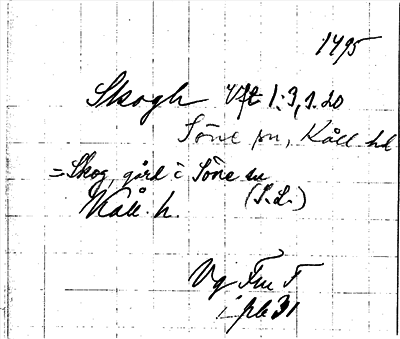 1495
Skogh Vft 1:3, s. 20
Söne sn, Kåll hd
= Skog, gård i Söne sn
Kåll. h. (S.L.)
Vg Fm F
i pb 31